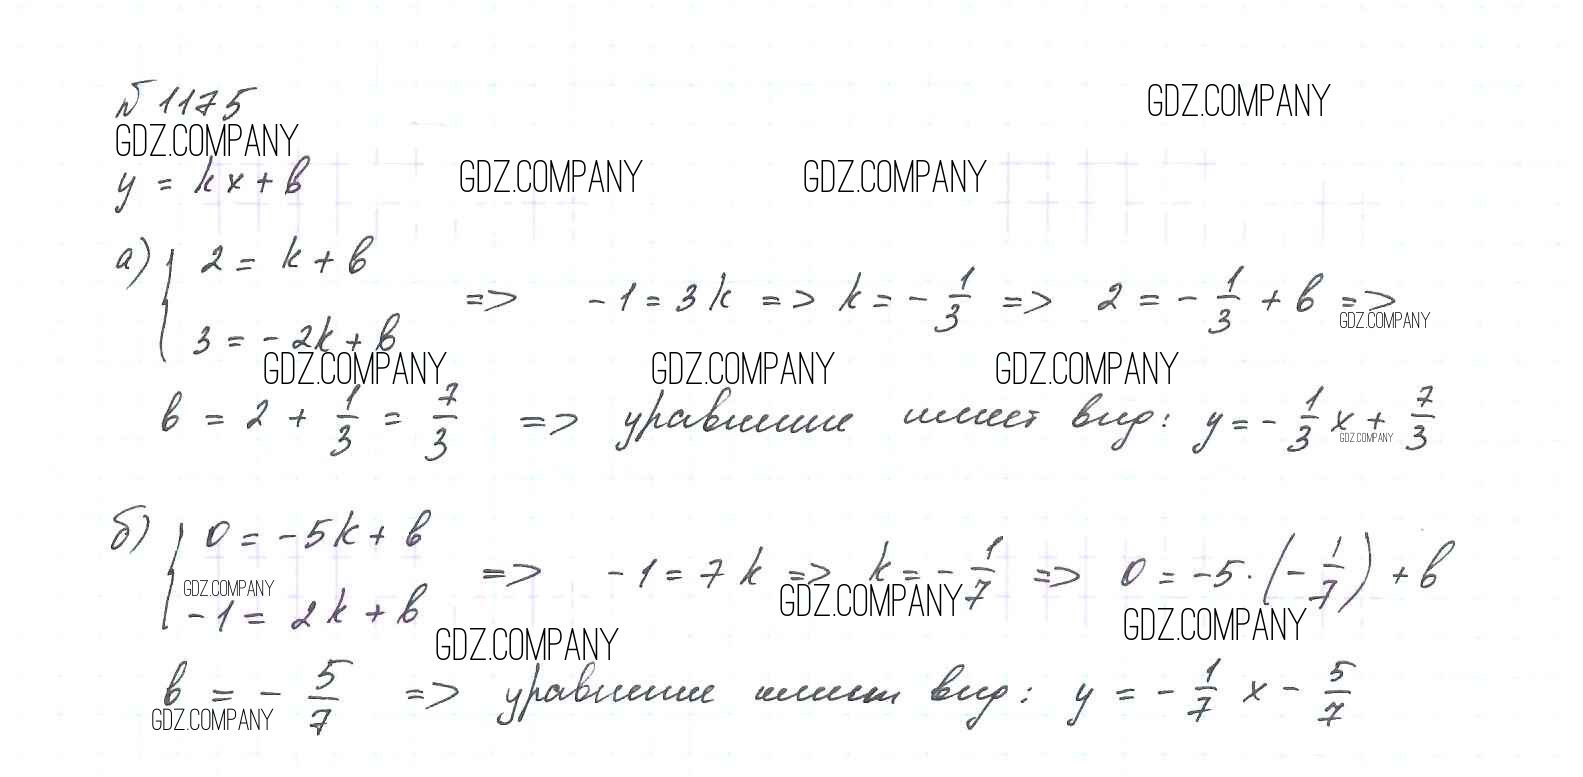 № 1175
GDZ.COMPANY
GDZ.COMPANY
y = kx + b
GDZ.COMPANY
GDZ.COMPANY
а) { 2 = k + b
3 = -2k + b
=> -1 = 3k => k = - 1/3 => 2 = - 1/3 + b =>
GDZ.COMPANY
GDZ.COMPANY
GDZ.COMPANY
GDZ.COMPANY
b = 2 + 1/3 = 7/3 => уравнение имеет вид: y = - 1/3 x + 7/3
GDZ.COMPANY
б) { 0 = -5k + b
-1 = 2k + b
=> -1 = 7k => k = - 1/7 => 0 = -5 · (- 1/7) + b
GDZ.COMPANY
GDZ.COMPANY
GDZ.COMPANY
GDZ.COMPANY
b = - 5/7 => уравнение имеет вид: y = - 1/7 x - 5/7
GDZ.COMPANY